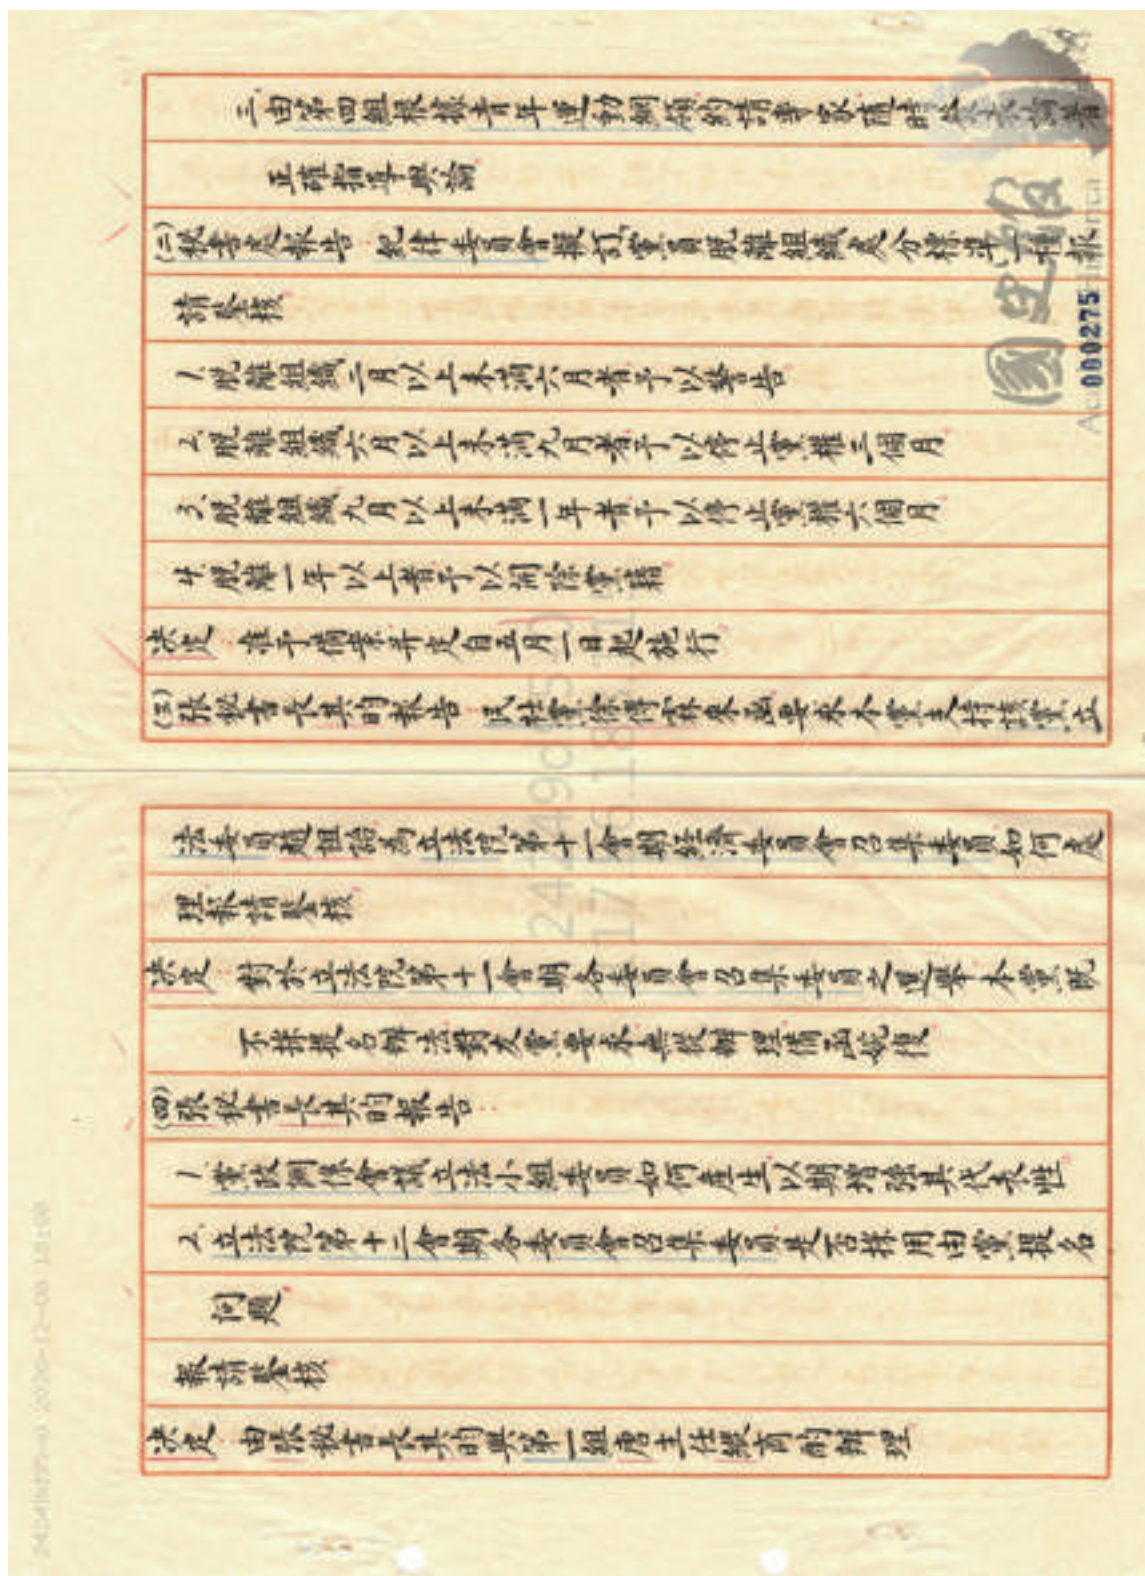 三、由第四組根據青年運動綱領約請專家隨時發表論著
正確指導輿論
(二)秘書處報告 紀律委員會擬訂黨員脫離組織處分標準一種報
請鑒核
1、脫離組織三月以上未滿六月者予以警告
2、脫離組織六月以上未滿九月者予以停止黨權三個月
3、脫離組織九月以上未滿一年者予以停止黨權六個月
4、脫離一年以上者予以開除黨籍
決定 准予備案并定自五月一日起施行
(三)張秘書長其昀報告 民社黨徐傅霖來函要求本黨支持該黨立
法委員趙祖詒為立法院第十一會期經濟委員會召集委員如何處
理報請鑒核
決定 對於立法院第十一會期各委員會召集委員之選舉本黨既
不採提名辦法對友黨要求無從辦理備函婉復
(四)張秘書長其昀報告
1、黨政關係會議立法小組委員如何產生以期增強其代表性
2、立法院第十二會期各委員會召集委員是否採用由黨提名
問題
報請鑒核
決定 由張秘書長其昀與第一組唐主任縱商酌辦理
國史館
000275